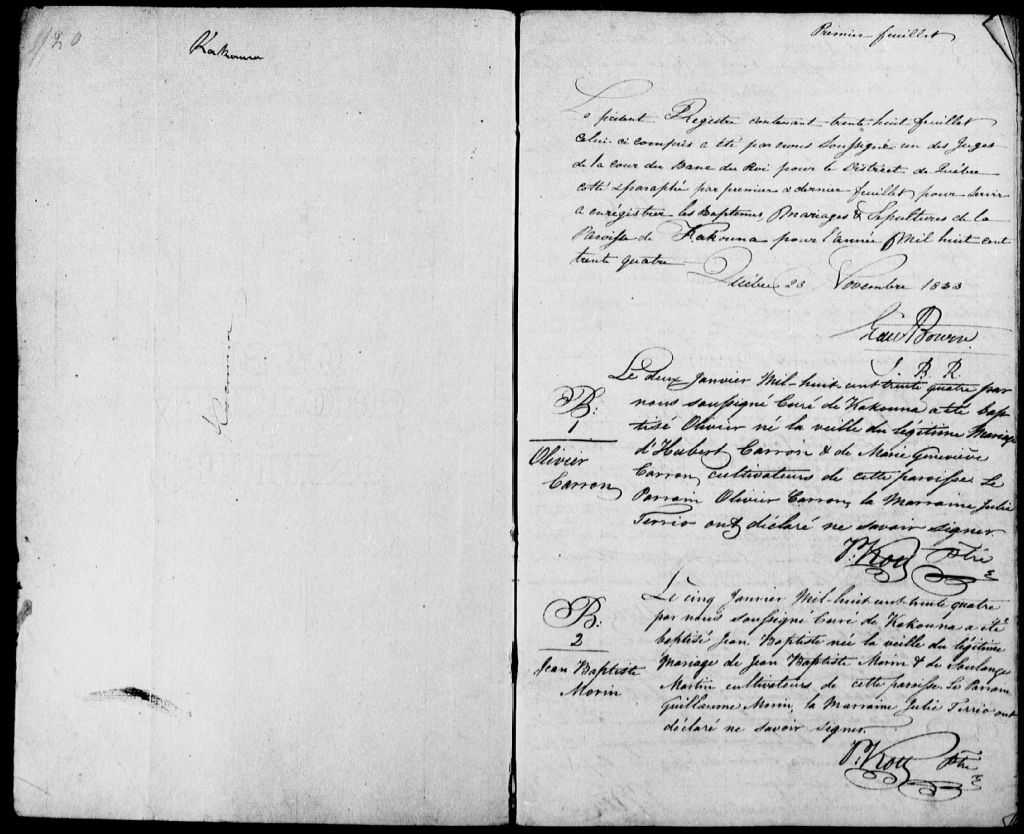 Kakouna
Kakouna
Premier feuillet
Le présent Registre contenant trente huit feuillet
celui-ci compris a été par nous soussigné un des Juges
de la cour du Banc du Roi pour le District de Québec
cotté & paraphé par premier & dernier feuillet pour servir
a enrégistrer les Baptemes, Mariages & Sepultures de la
Paroisse de Kakouna pour l'année Mil huit cent
trente quatre
Québec 23 Novembre 1833
Edw Bowen
J. B. R.
Le deux Janvier Mil-huit-cent trente quatre par
nous soussigné Curé de Kakouna a été bap
tisé Olivier né la veille du légitime Mariage
d'Hubert Carron & de Marie Geneviève
Carron cultivateurs de cette paroisse. Le
Parrain Olivier Carron, la Marraine Julie
Terrio ont déclaré ne savoir signer.
B:
1
Olivier
Carron
Ptre
Le cinq Janvier Mil-huit-cent-trente quatre
par nous soussigné Curé de Kakouna a été
baptisé Jean Baptiste née la veille du légitime
Mariage de Jean Baptiste Morin & de Soulange
Martin cultivateurs de cette paroisse. Le Parrain
Guillaume Morin, la Marraine Julie Terrio ont
déclaré ne savoir signer.
B:
2
Jean Baptiste
Morin
Ptre